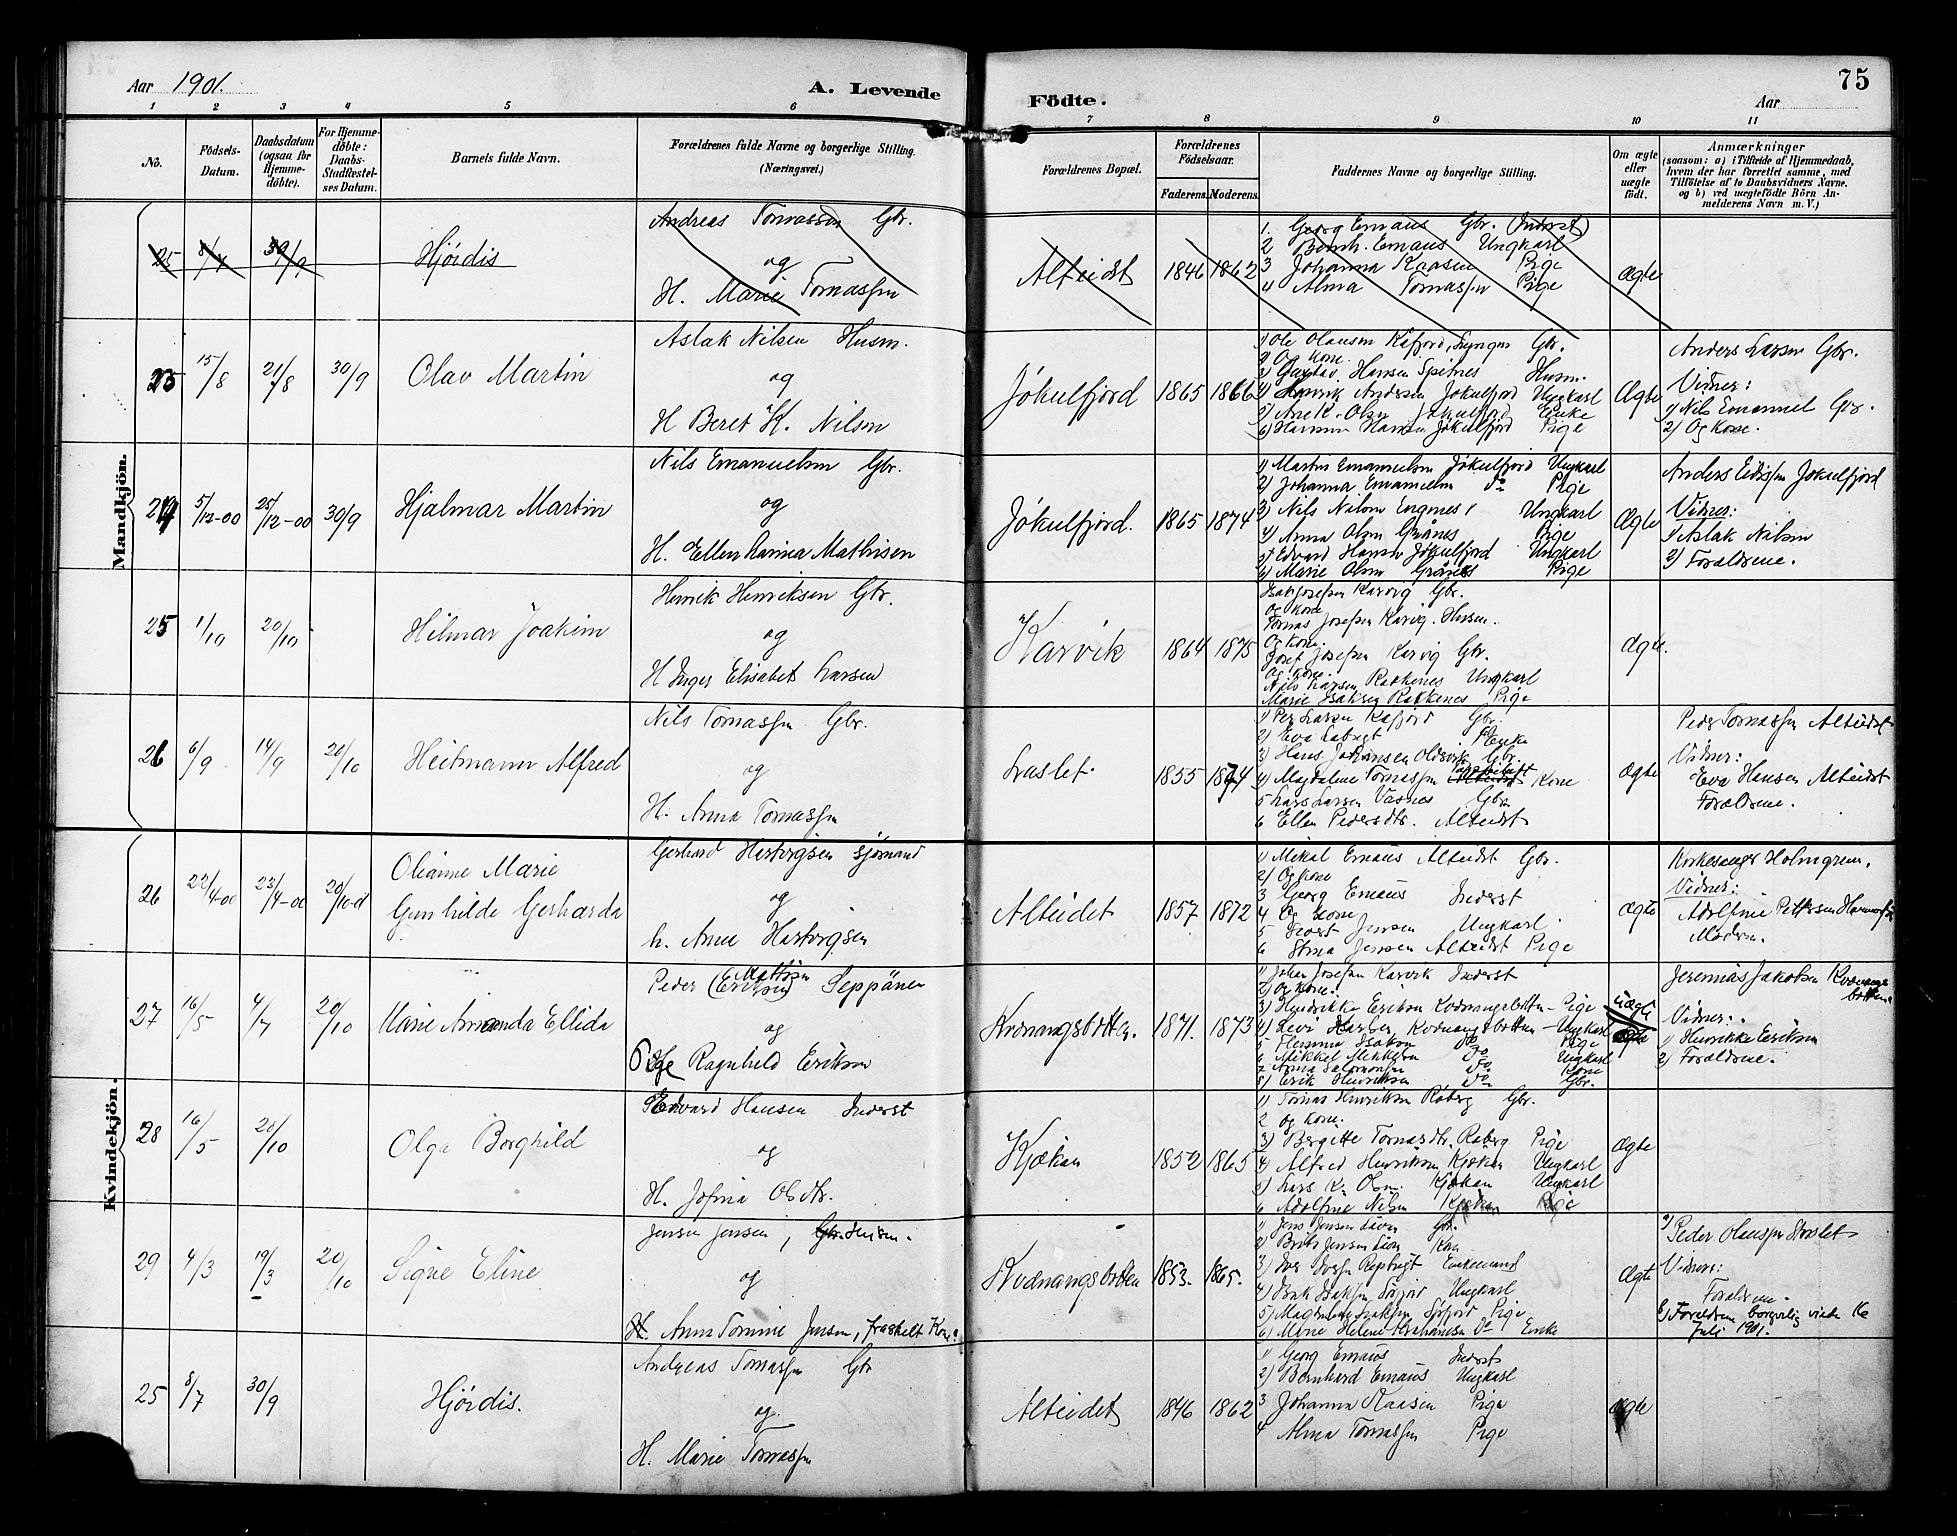 Aar 1901.
A. Levende Födte.
75
Aar
1 2 3 4 5 6 7 8 9 10 11
No.
Födsels-Datum.
Daabsdatum (ogsaa for Hjemmedöbte).
For Hjemmedöbte: Daabs-Stadfæstelses Datum.
Barnets fulde Navn.
Forældrenes fulde Navne og borgerlige Stilling. (Næringsvei.)
Forældrenes Bopæl.
Forældrenes Födselsaar.
Faderens. Moderens.
Faddernes Navne og borgerlige Stilling.
Om ægte eller uægte födt.
Anmærkninger
(saasom: a) i Tilfælde af Hjemmedaab, hvem der har forrettet samme, med Tilföielse af to Daabsvidners Navne. og b) ved uægtefödte Börn Anmelderens Navn m. V.)
Mandkjön.
25 8/7 30/9 Hjördis
Andreas Tomassen Gbr.
og
H. Marie Tomassen
Alteidet 1846 1862
1. Georg Emaus Gbr. (Inderst)
2 Bernh. Emaus Ungkarl
3 Johanna Kaasen Pige
4 Alma Tomassen Pige
ægte
25 15/8 21/8 30/9 Olav Martin
Aslak Nilsen Husm.
og
H Beret K. Nilsen
Jökulfjord 1865 1866
1) Ole Olausen Kåfjord, Lyngen Gbr.
2) Og Kone.
3) Gustav Hansen Spitnes Husm.
4) Henrik Andersen Jökulfjord Ungkarl
5) Ane K. Olsen Jökulfjord Enke
6) Hansine Hansen Jökulfjord Pige
Ægte
Anders Larsen Gbr.
Vidner:
1) Nils Emanuel Gbr.
2) Og kone.
24 5/12-00 25/12-00 30/9 Hjalmar Martin
Nils Emanuelsen Gbr.
og
H. Ellen Karina Mathisen
Jökulfjord. 1865 1874
1) Martin Emanuelsen Jökulfjord Ungkarl
2) Johanna Emanuelsen do Pige
3) Nils Nilsen Ungkarl
4) Anna Olsen Grånes Pige
5) Edvard Hansen Jökulfjord Ungkarl
6) Marie Olsen Grånes Pige
Ægte
Anders Jökulfjord
Vidner:
1) Aslak Nilsen
2) Forældrene.
25 1/10 20/10 Hilmar Joakim
Henrik Henriksen Gbr.
og
H Inger Elisabet Larsen
Karvik 1864 1875
Isak Josefsen Karvig Gbr.
Og kone
Tomas Josefsen Karvig. Husm.
Og kone.
Josef Josefsen Karvig Gbr.
Og kone.
Nils Larsen Rakkenes Ungkarl
Marie Isaksen Rakkenes Pige
ægte.
26 6/9 14/9 20/10 Heitmann Alfred
Nils Tomassen Gbr.
og
H. Anna Tomassen
Laslet. 1855 1874
1) Per Larsen Kåfjord Gbr.
2) Eva Enke
3) Hans Johansen Oldervik Gbr.
4) Magdalene Tomassen Kone
5 Lars Larsen Vasnes Gbr
6 Ellen Pedersdtr. Alteidet
ægte
Peder Tomassen Alteidet
Vidner:
Eva Hansen Alteidet
Forældrene.
Kvindekjön.
26 22/4-00 23/4-00 20/10-01
Oliänne Marie
Gunhilde Gerharda
Gerhard Hertvigsen sjömand
og
h. Anne Hertvigsen
Alteidet 1857 1872
1) Mikal Emaus Alteidet Gbr.
2) Og kone
3 Georg Emaus Inderst
4 Og kone
5 Jensen Ungkarl
6 Stina Jensen Alteidet Pige
ægte
Kirkesanger Holmgren.
Vidner:
Adolfine Pettersen
Moderen.
27 16/5 4/7 20/10 Marie Amanda Ellida
Peder (Eriksen) Mattisen Seppänen
og
Pige Ragnhild Eriksen
Kvænangsbotten. 1871. 1873
1) Johan Josefsen Karvik Inderst
2) og kone.
3) Hendrikke Eriksen Kvænangsbotten - Pige
4) Levi Kvænangsbotten - Ungkarl
5 Isaksen do Pige
6 Mikkel Mikkelsen do Ungkarl
7 Anna Salomonsen do Kone
8) Erik Henriksen do Gbr.
uægte
Jeremias Jakobsen Kvænangsbotten
Vidner:
1) Henrikke Eriksen
2) Forældrene.
28 16/5 20/10 Olga Borghild
Edvard Hansen Inderst
og
H. Josina Olsdtr.
Kjækan 1852 1865
1) Tomas Henriksen Råberg Gbr.
2 og kone.
3) Bergitte Tomasdtr. Råberg Pige
4) Alfred Henriksen Kjækan Ungkarl
5) Lars K. Olsen. Kjækan Ungkarl
6 Adolfine Nilsen Kjækan Pige
ægte
29 4/3 19/3 20/10 Signe Eline
Jensen Jensen, Husm.
og
H. Anna Tomine Jensen, fraskilt Kone.
Kvænangsbotten 1853. 1865.
1) Jens Jensen Gbr.
2) Brita Jensen Kone
3) Iver Iversen Enkemand
4) Isak Isaksen Sörfjord Ungkarl
5) Magdalena Isaksen Sörfjord Pige
6) Marie Helene Abrahamsen do Enke
ægte
a) Peder Olaussen Storslet
Vidner:
Forældrene.
b) Forældrene borgerlig viede 16 Juli 1901.
25 8/7 30/9 Hjördis.
Andreas Tomassen Gbr
og
H. Marie Tomassen
Alteidet 1846 1862
1) Georg Emaus Inderst
2) Bernhard Emaus Ungkarl
3 Johanna Kaasen Pige
4 Alma Tomassen Pige
ægte